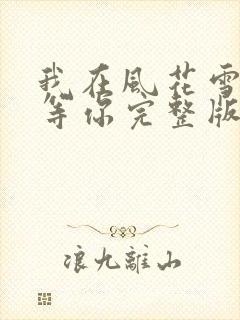 我在風花雪
等你完整版
浪九離山